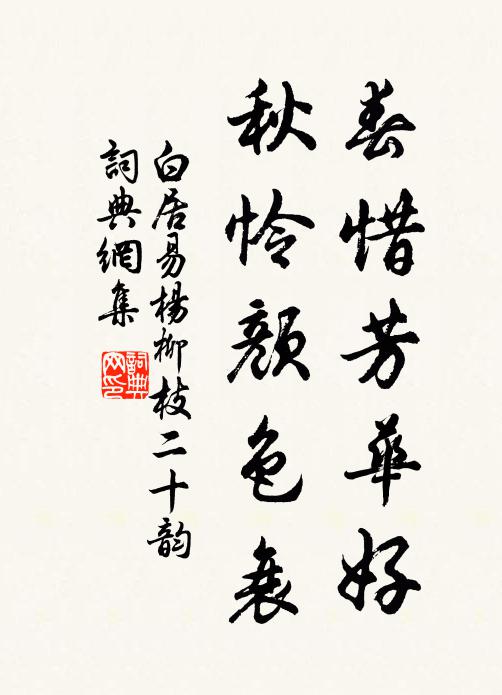 春惜芳華好
秋怜顔色衰
白居易楊柳枝二十韵
詞典網集
詞典网印